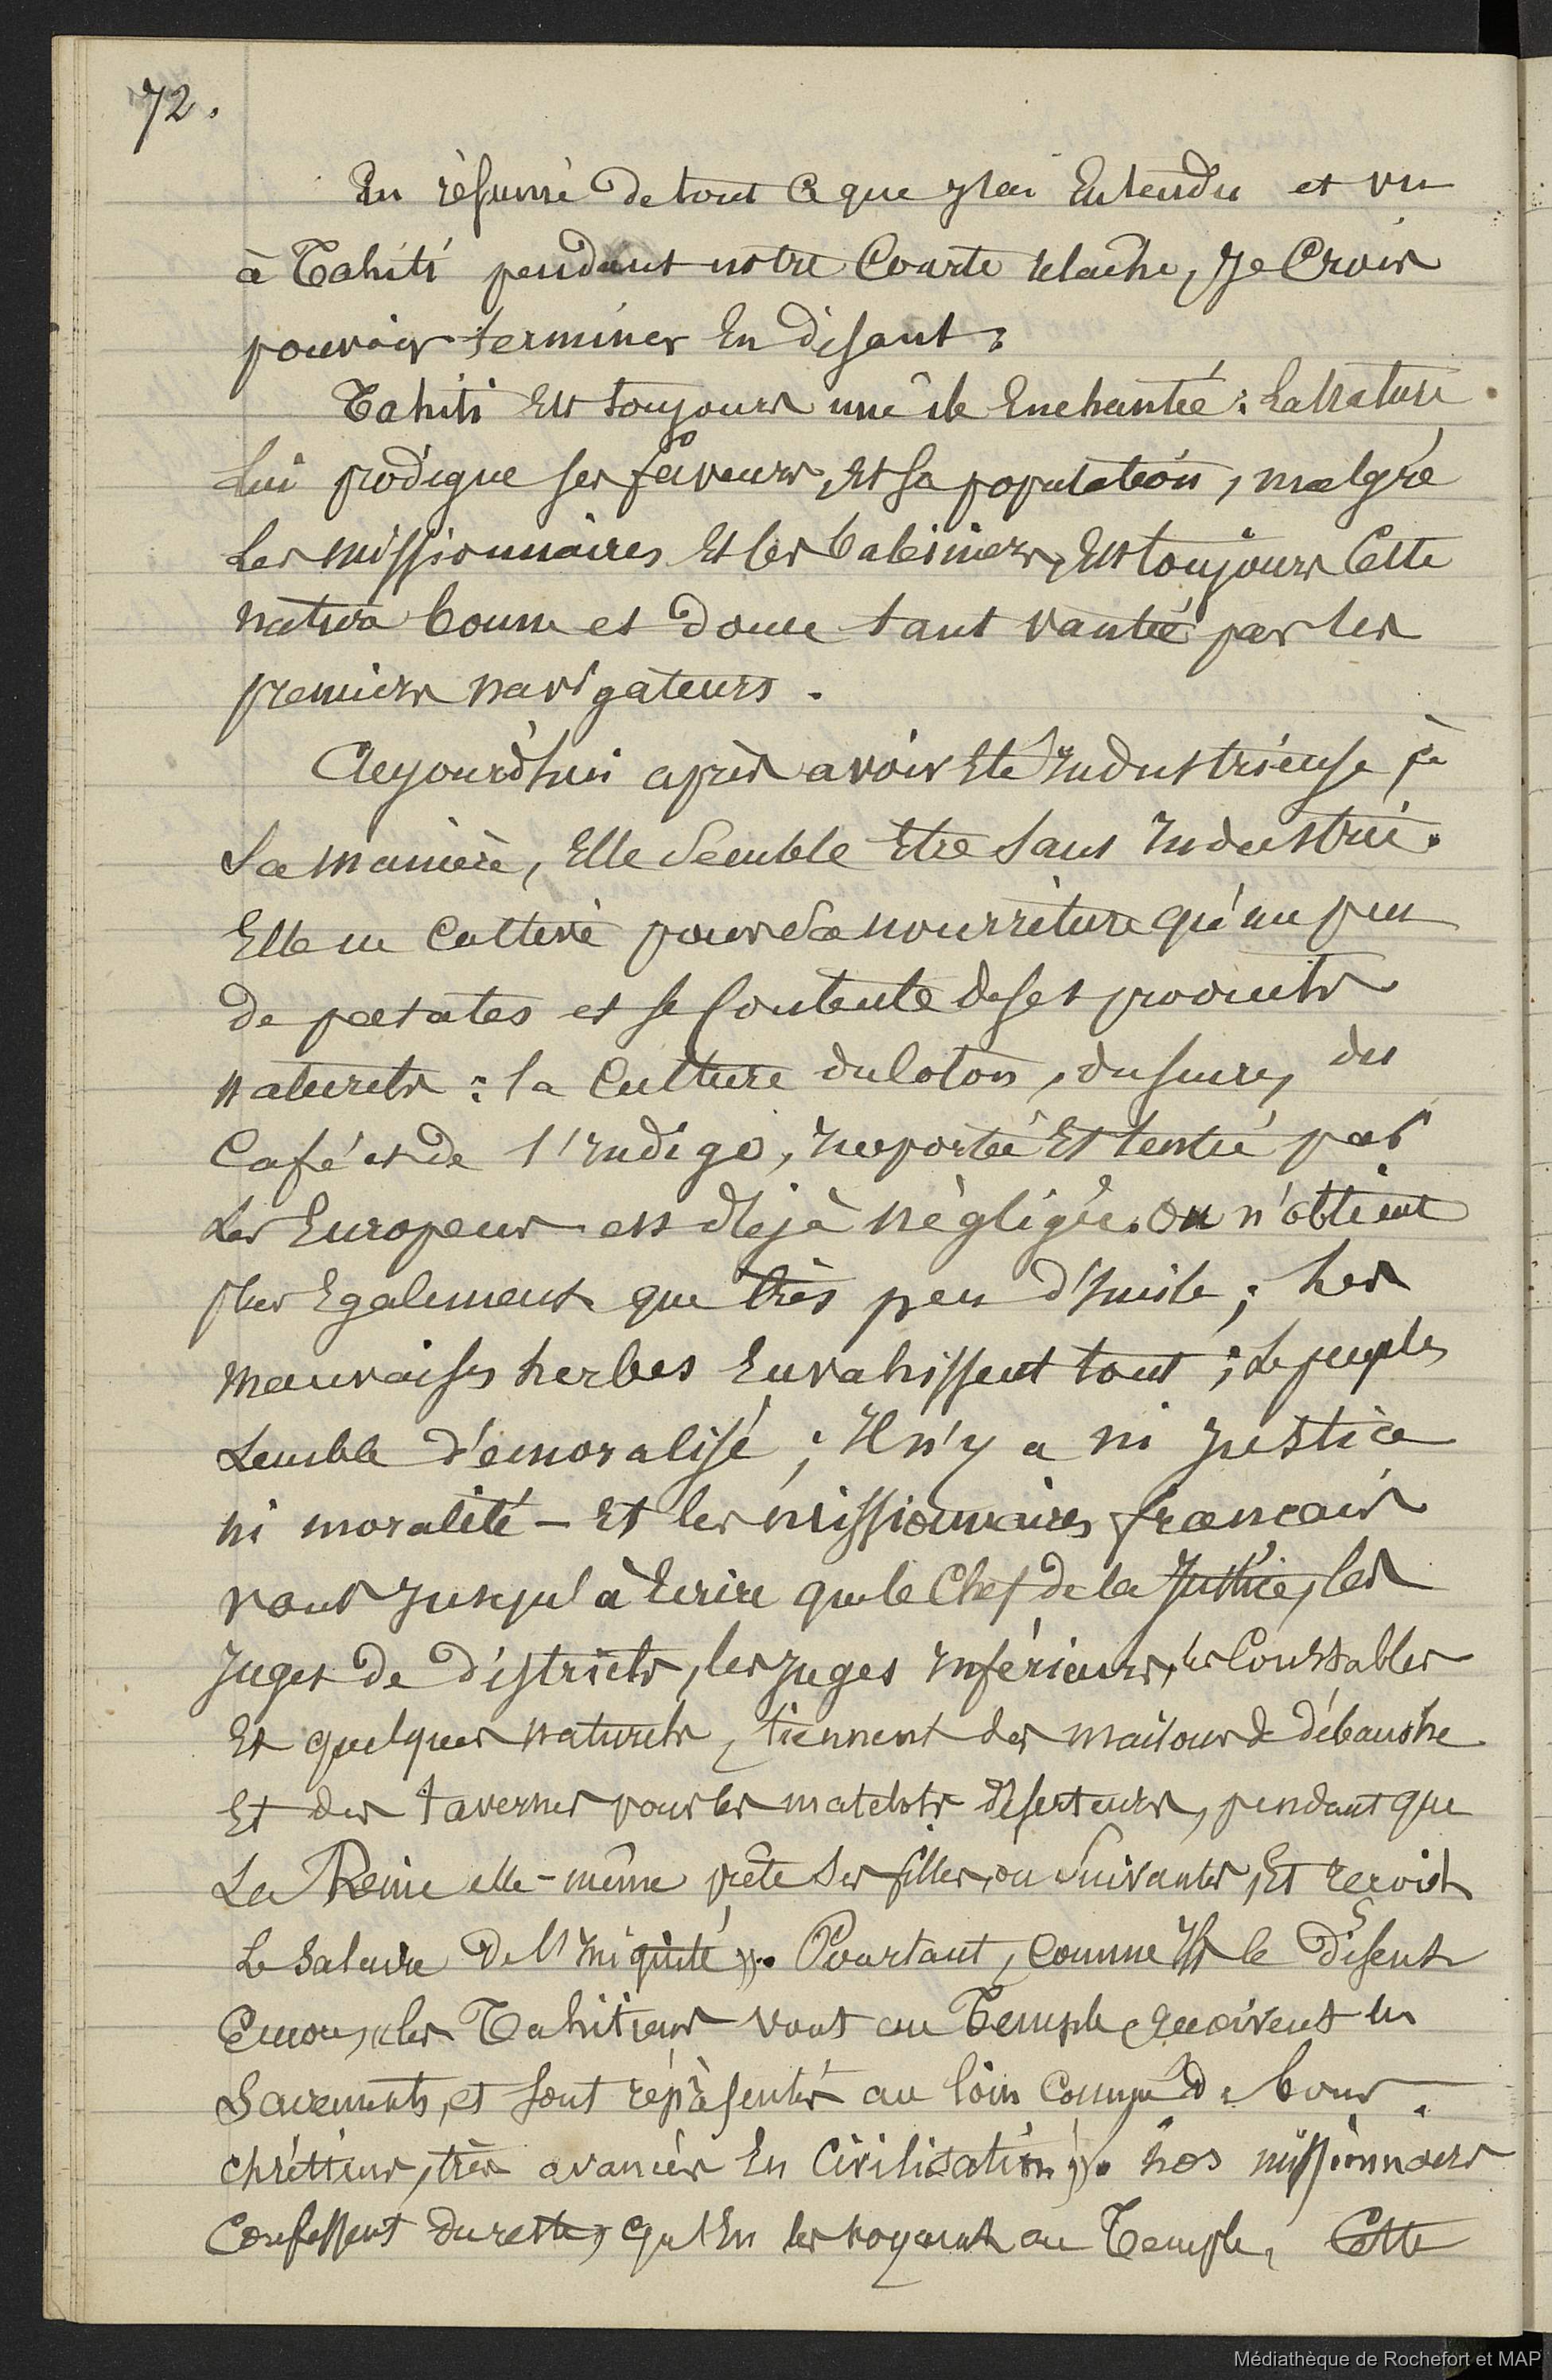 72.
En résumé de tout ce que j'ai Entendu et vu
à Tahiti pendant notre Courte relâche, Je Crois
pouvoir terminer En disant :
Tahiti Est toujours une île Enchantée : La Nature
Lui prodigue ses faveurs, Et sa population, malgré
Les missionnaires Et les baleiniers, Est toujours Cette
nature bonne et douce tant vantée par les
premiers navigateurs.
Aujourd'hui après avoir Eté Industrieuse, à
Sa manière, Elle Semble Etre Sans Industrie.
Elle ne Cultive pour Sa nourriture qu'un peu
de patates et se Contente de ses produits
naturels : la Culture du Coton, du sucre, du
Café et de l'Indigo, Importée Et tentée par
Les Europeens est déjà négligée. On n'obtient
plus Egalement que très peu d'huile ; Les
mauvaises herbes Envahissent tout ; Le peuple
Semble démoralisé ; Il n'y a ni Justice
ni moralité – Et les missionnaires français
vont Jusqu'à Ecrire que le Chef de la Justice, les
Juges de districts, les Juges Inférieurs, les Constables
Et quelques naturels, tiennent des maisons de débauche
Et des tavernes pour les matelots déserteurs, pendant que
La Reine elle-même prête Ses filles, ou Suivantes, Et reçoit
Le Salaire De l'Iniquité ». Pourtant, Comme Ils le disent
Encore, « les Tahitiens vont au Temple, reçoivent les
Sacrements, et sont représentés au loin comme de bons
chrétiens, très avancés En Civilisation ». Nos missionnaires
Confessent du reste, qu'En les voyant au Temple, Cette